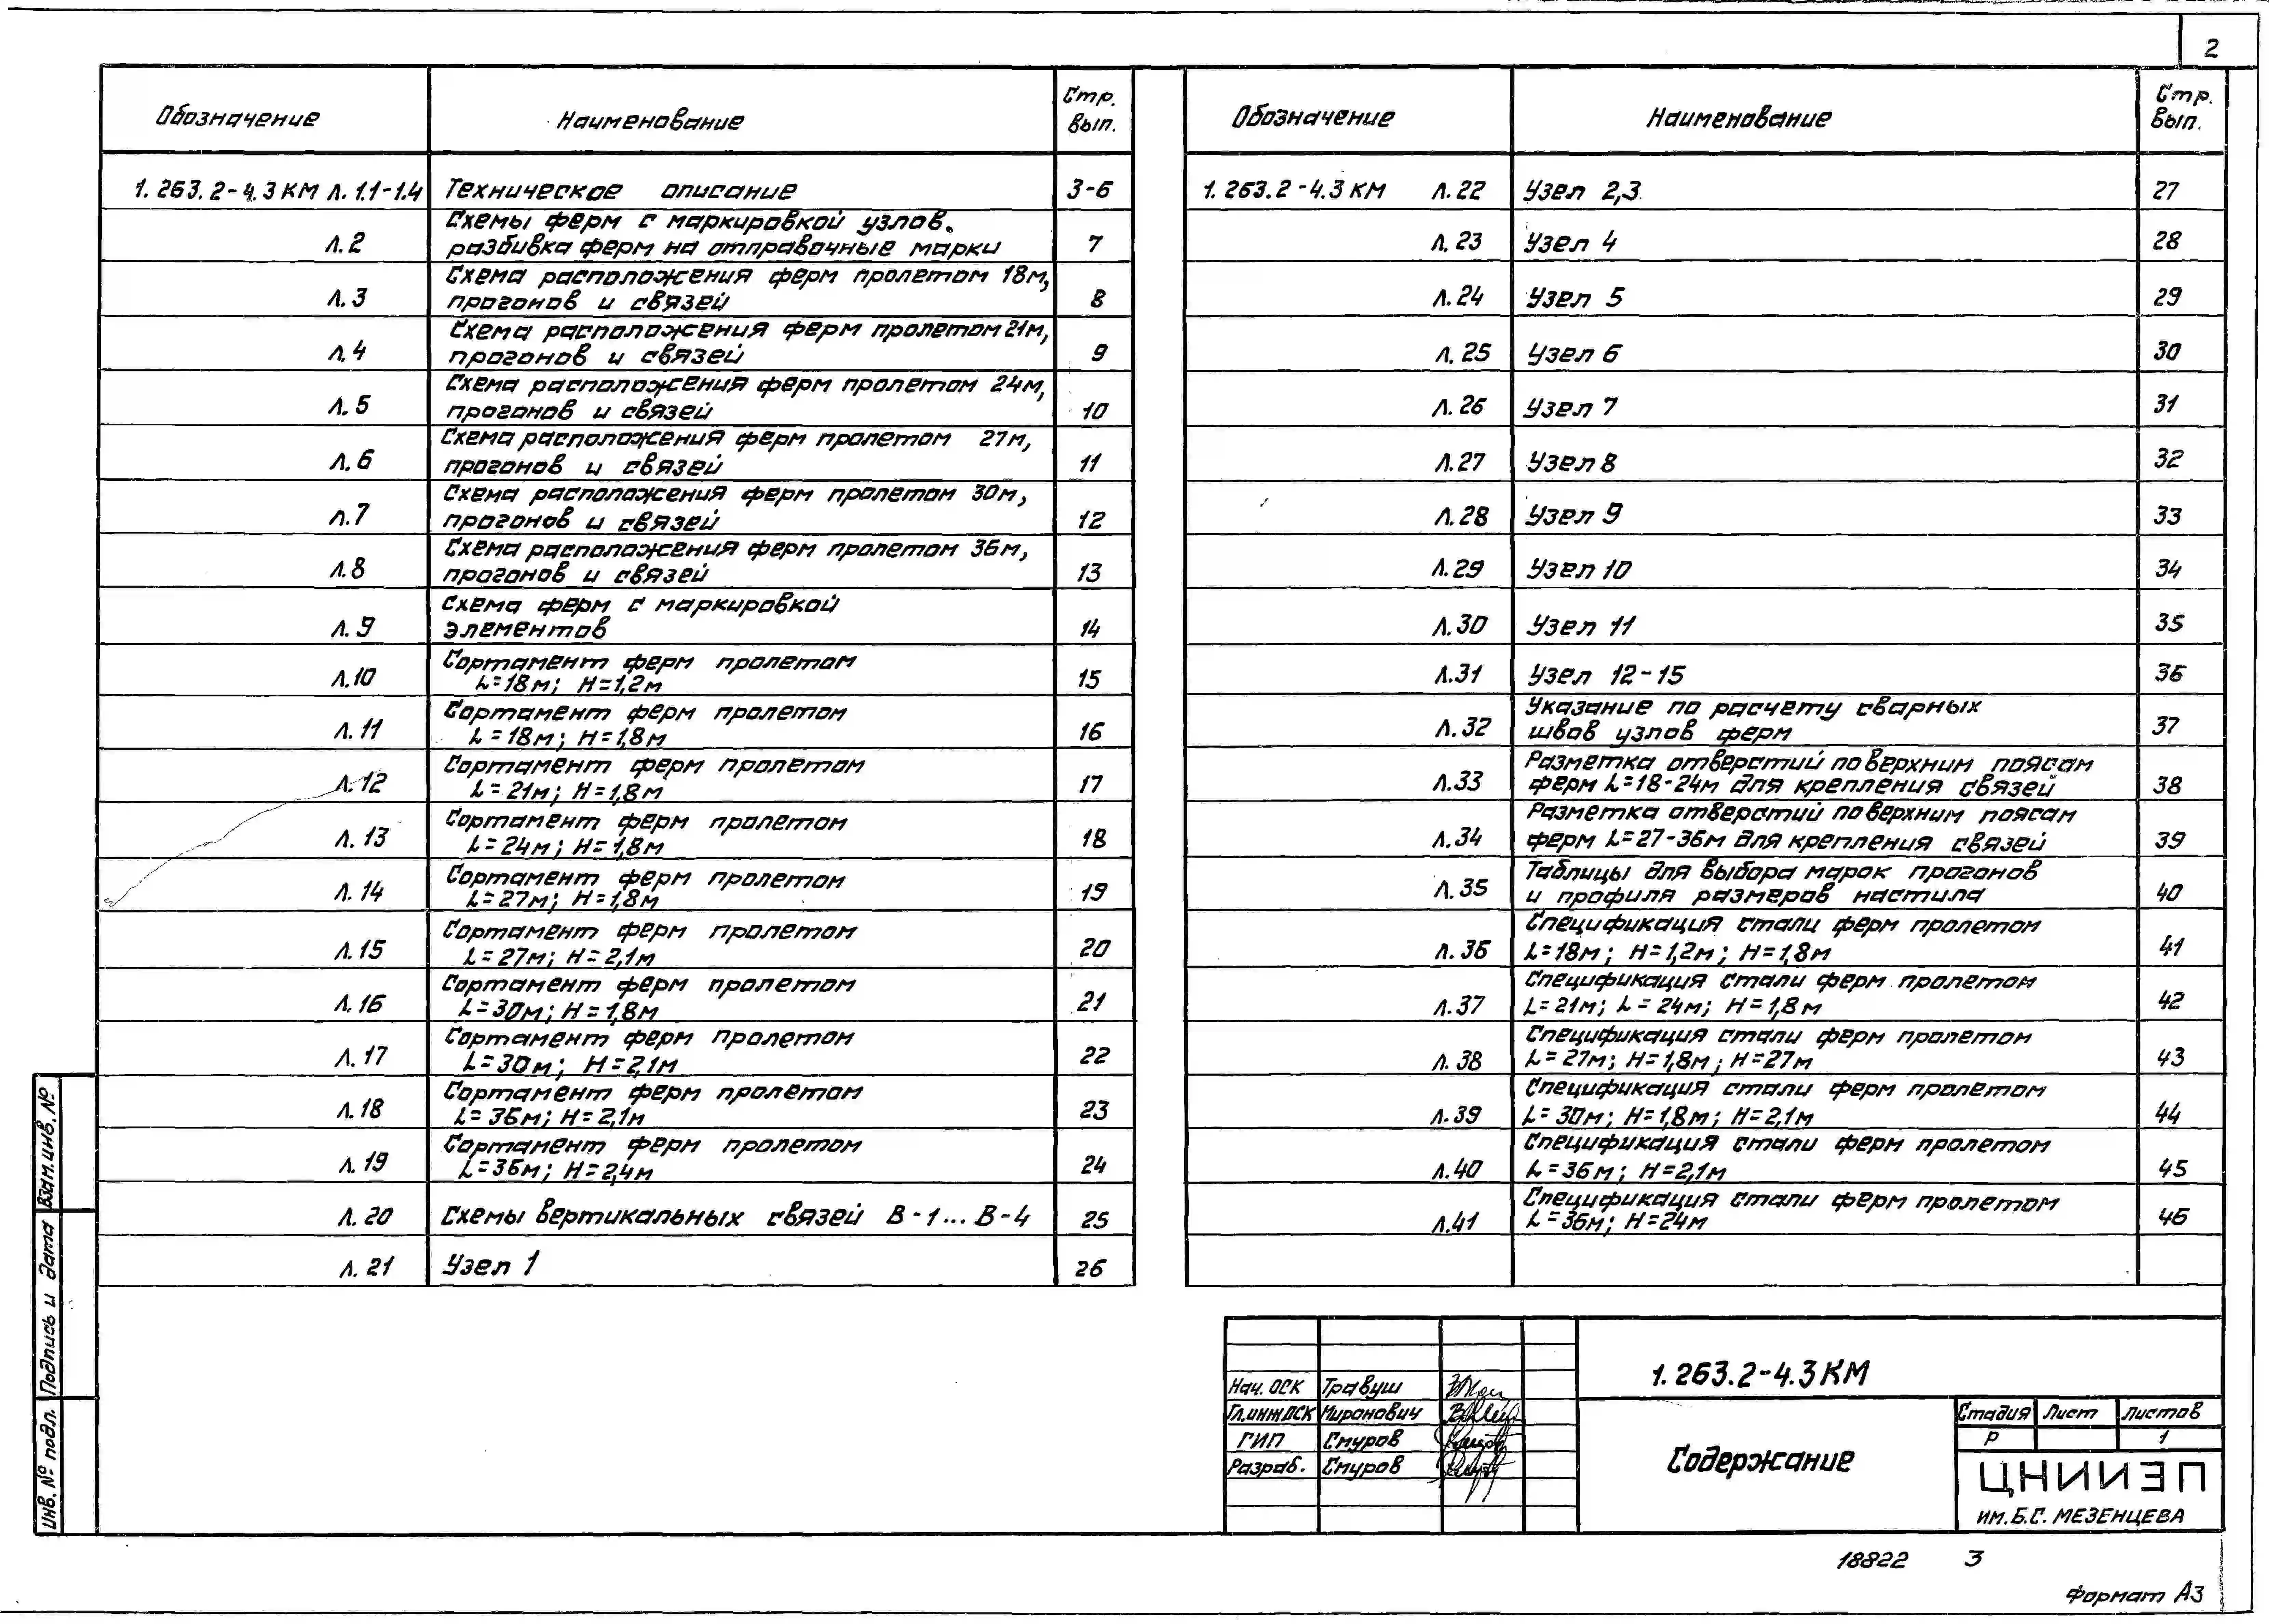 2
Обозначение Наименование Стр. вып.
1.263.2-4.3КМ Л.1.1-1.4 Техническое описание 3-6
Л.2 Схемы ферм с маркировкой узлов.
разбивка ферм на отправочные марки 7
Л.3 Схема расположения ферм пролетом 18м,
прогонов и связей 8
Л.4 Схема расположения ферм пролетом 21м,
прогонов и связей 9
Л.5 Схема расположения ферм пролетом 24м,
прогонов и связей 10
Л.6 Схема расположения ферм пролетом 27м,
прогонов и связей 11
Л.7 Схема расположения ферм пролетом 30м,
прогонов и связей 12
Л.8 Схема расположения ферм пролетом 36м,
прогонов и связей 13
Л.9 Схема ферм с маркировкой
элементов 14
Л.10 Сортамент ферм пролетом
L=18м; H=1,2м 15
Л.11 Сортамент ферм пролетом
L=18м; H=1,8м 16
Л.12 Сортамент ферм пролетом
L=21м; H=1,8м 17
Л.13 Сортамент ферм пролетом
L=24м; H=1,8м 18
Л.14 Сортамент ферм пролетом
L=27м; H=1,8м 19
Л.15 Сортамент ферм пролетом
L=27м; H=2,1м 20
Л.16 Сортамент ферм пролетом
L=30м; H=1,8м 21
Л.17 Сортамент ферм пролетом
L=30м; H=2,1м 22
Л.18 Сортамент ферм пролетом
L=36м; H=2,1м 23
Л.19 Сортамент ферм пролетом
L=36м; H=2,4м 24
Л.20 Схемы вертикальных связей В-1...В-4 25
Л.21 Узел 1 26
Обозначение Наименование Стр. вып.
1.263.2-4.3КМ Л.22 Узел 2,3 27
Л.23 Узел 4 28
Л.24 Узел 5 29
Л.25 Узел 6 30
Л.26 Узел 7 31
Л.27 Узел 8 32
Л.28 Узел 9 33
Л.29 Узел 10 34
Л.30 Узел 11 35
Л.31 Узел 12-15 36
Л.32 Указание по расчету сварных
швов узлов ферм 37
Л.33 Разметка отверстий по верхним поясам
ферм L=18-24м для крепления связей 38
Л.34 Разметка отверстий по верхним поясам
ферм L=27-36м для крепления связей 39
Л.35 Таблицы для выбора марок прогонов
и профиля размеров настила 40
Л.36 Спецификация стали ферм пролетом
L=18м; H=1,2м; H=1,8м 41
Л.37 Спецификация стали ферм пролетом
L=21м; L=24м; H=1,8м 42
Л.38 Спецификация стали ферм пролетом
L=27м; H=1,8м; H=27м 43
Л.39 Спецификация стали ферм пролетом
L=30м; H=1,8м; H=2,1м 44
Л.40 Спецификация стали ферм пролетом
L=36м; H=2,1м 45
Л.41 Спецификация стали ферм пролетом
L=36м; H=24м 46
Взам.инв.№
Подпись и дата
Инв.№ подл.
Нач.ОСК Травуш
Гл.инж.ОСК Миранович
ГИП Смуров
Разраб. Смуров
1.263.2-4.3КМ
Содержание
Стадия Лист Листов
Р 1
ЦНИИЭП
ИМ.Б.С.МЕЗЕНЦЕВА
18822 3
Формат А3